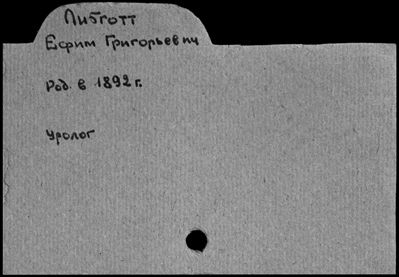 Либготт
Ефим Григорьевич
Род. в 1892 г.
Уролог